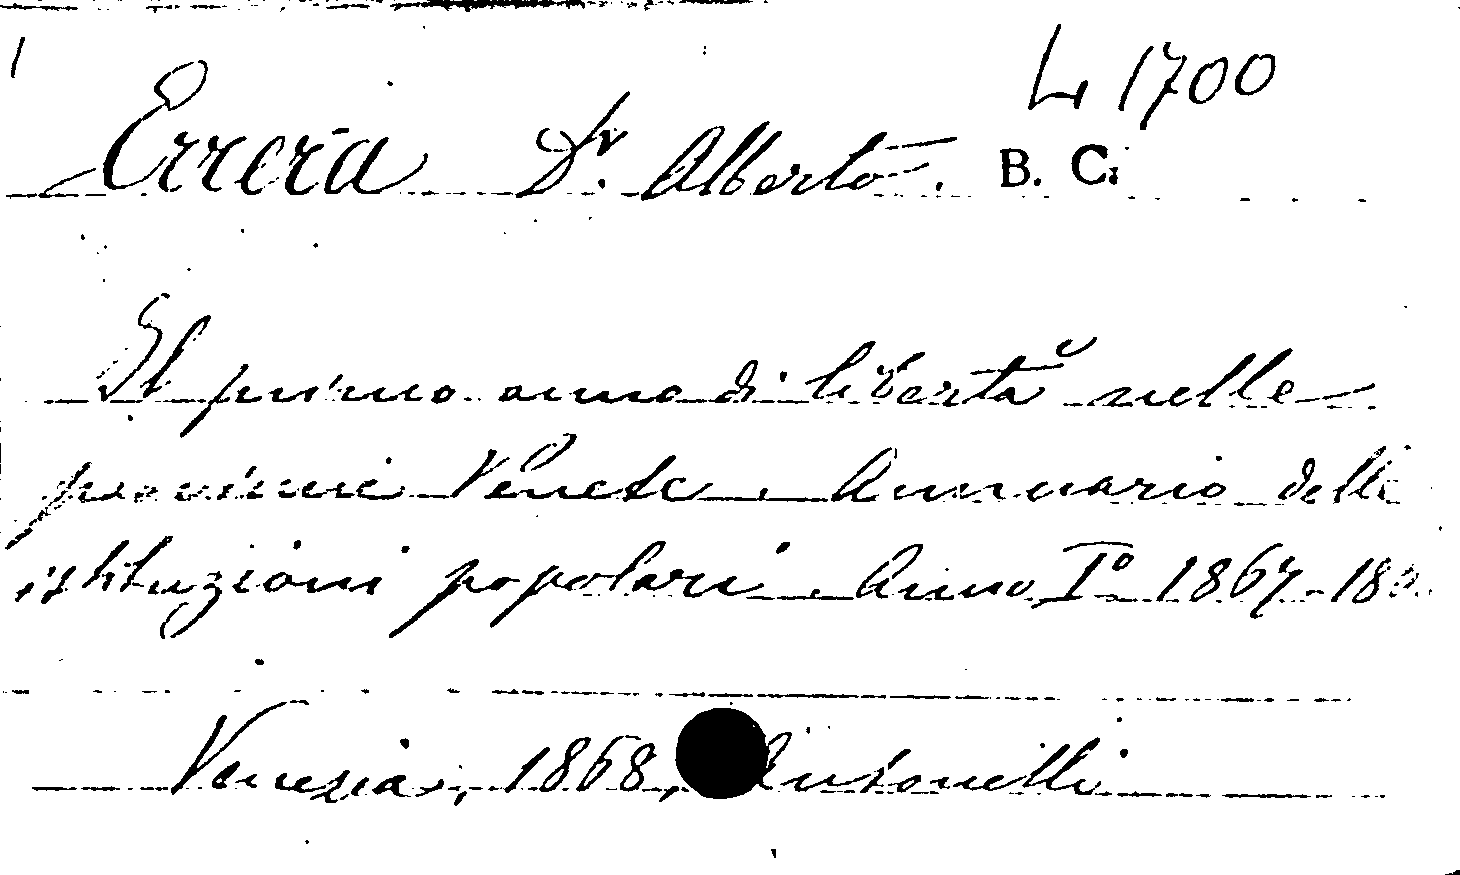 L 1700
Errera Dr. Alberto. B. C.
Il primo anno di libertà nelle
provincie Venete. Annuario delle
istituzioni popolari. Anno I° 1867-18
Venezia, 1868, Antonelli